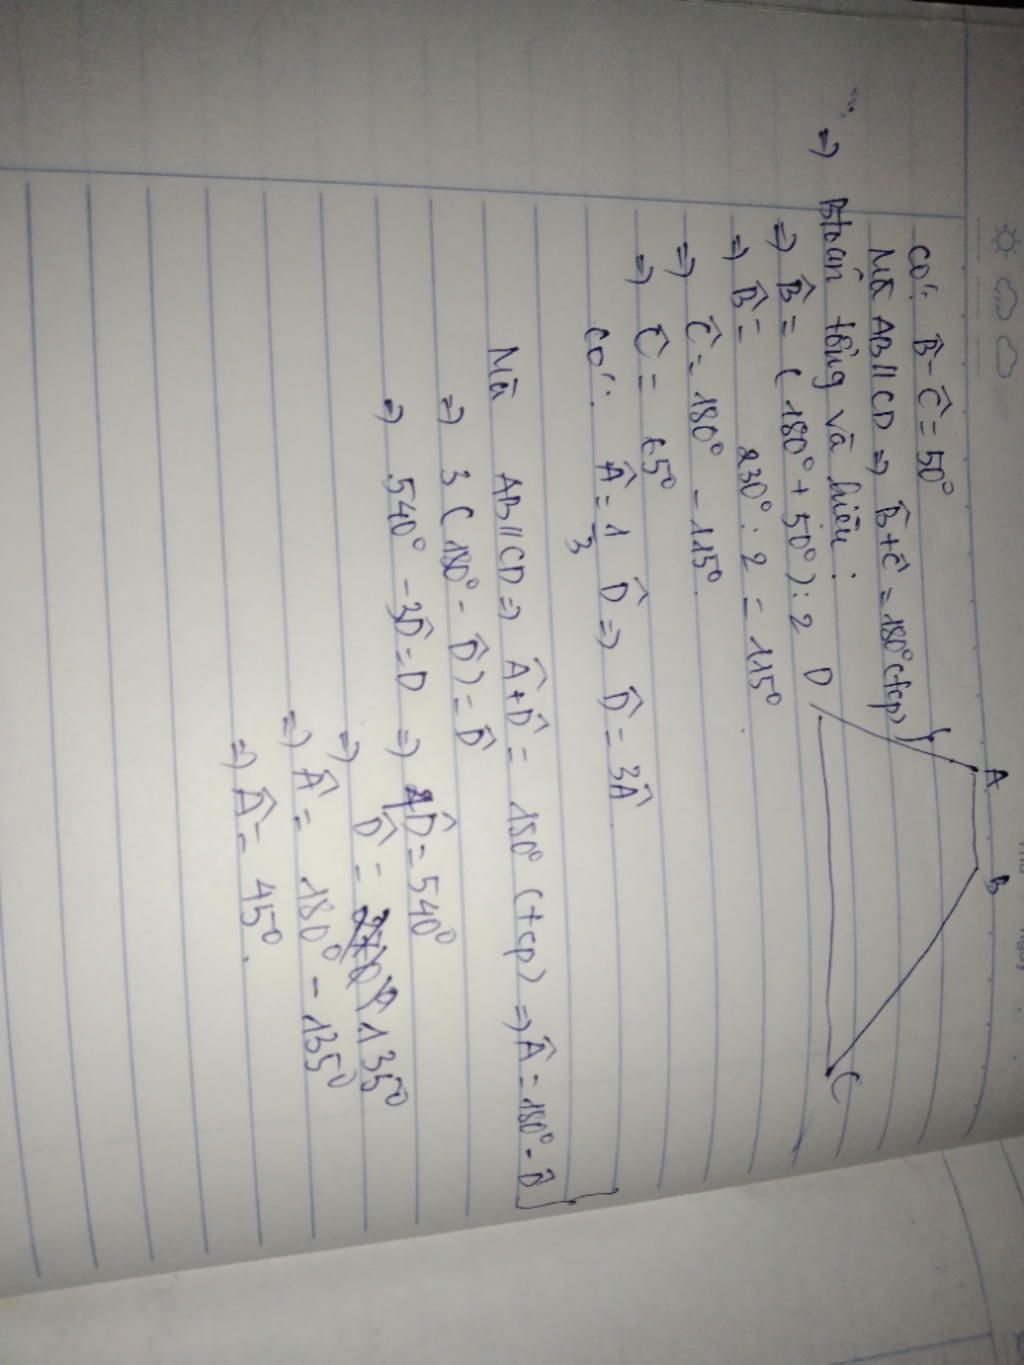 A
B
D
C
Có: B̂ - Ĉ = 50°
Mà AB // CD => B̂ + Ĉ = 180° (tcp)
=> Btoán tổng và hiệu:
=> B̂ = (180° + 50°) : 2
=> B̂ = 230° : 2 = 115°
=> Ĉ = 180° - 115°
=> Ĉ = 65°
Có: Â = 1/3 D̂ => D̂ = 3Â
Mà AB // CD => Â + D̂ = 180° (tcp) => Â = 180° - D̂
=> 3(180° - D̂) = D̂
=> 540° - 3D̂ = D => 4D̂ = 540°
=> D̂ = 135°
=> Â = 180° - 135°
=> Â = 45°.